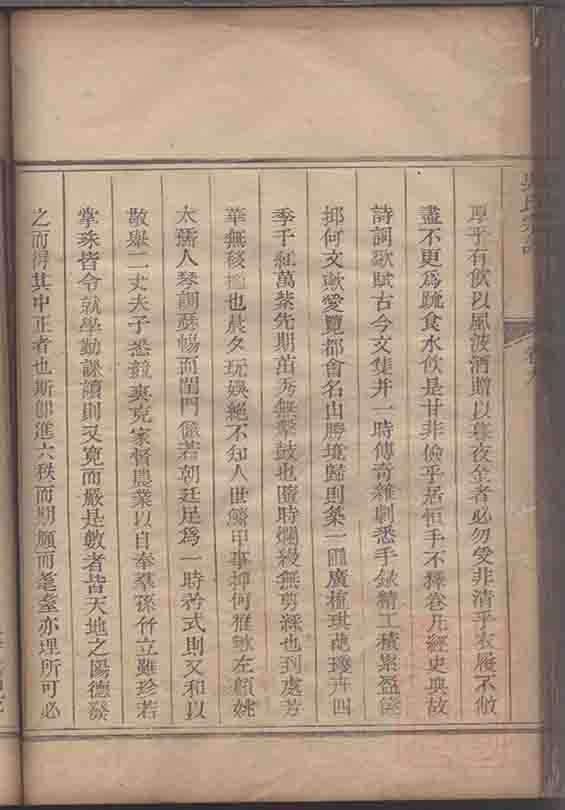 吳氏宗譜
厚乎有飲以風波酒贈以暮夜金者必勿受非清乎衣履不敝
盡不更爲疏食水飲是甘非儉乎居恒手不釋卷凡經史典故
詩詞歌賦古今文集并一時傳奇雜劇悉手錄精工積案盈篋
抑何文歟愛覽都會名山勝境歸則築一圃廣植琪葩瓊卉四
季千紅萬紫先期茁秀無擊鼓也隨時爛縵無剪綵也到處芳
華無移檻也晨夕玩娛絕不知人世鱗甲事抑何雅歟左顧姚
太孺人琴調瑟暢而閨門儼若朝廷足爲一時矜式則又和以
敬舉二丈夫子悉競爽克家督農業以自奉羣孫竹立雖珍若
掌珠皆令就學勤課讀則又寬而嚴是數者皆天地之陽德發
之而得其中正者也斯卽進六秩而期頤而耄耋亦理所可必